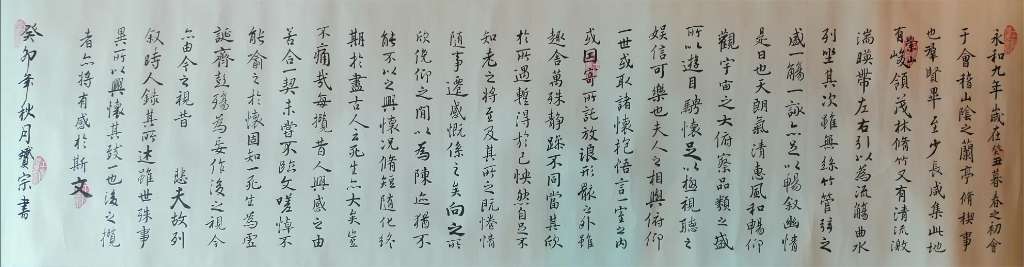 永和九年歲在癸丑暮春之初會
于會稽山陰之蘭亭脩稧事
也羣賢畢至少長咸集此地
有崇山峻領茂林脩竹又有清流激
湍暎帶左右引以為流觴曲水
列坐其次雖無絲竹管弦之
盛一觴一詠亦足以暢叙幽情
是日也天朗氣清惠風和暢仰
觀宇宙之大俯察品類之盛
所以遊目騁懷足以極視聽之
娱信可樂也夫人之相與俯仰
一世或取諸懷抱悟言一室之内
或因寄所託放浪形骸之外雖
趣舍萬殊静躁不同當其欣
於所遇蹔得於己怏然自足不
知老之將至及其所之既惓情
隨事遷感慨係之矣向之所
欣俛仰之閒以為陳迹猶不
能不以之興懷況脩短隨化終
期於盡古人云死生亦大矣豈
不痛哉每攬昔人興感之由
若合一契未嘗不臨文嗟悼不
能喻之於懷固知一死生為虛
誕齊彭殤為妄作後之視今
亦由今之視昔 悲夫故列
叙時人錄其所述雖世殊事
異所以興懷其致一也後之攬
者亦將有感於斯文
癸卯年秋月宗書